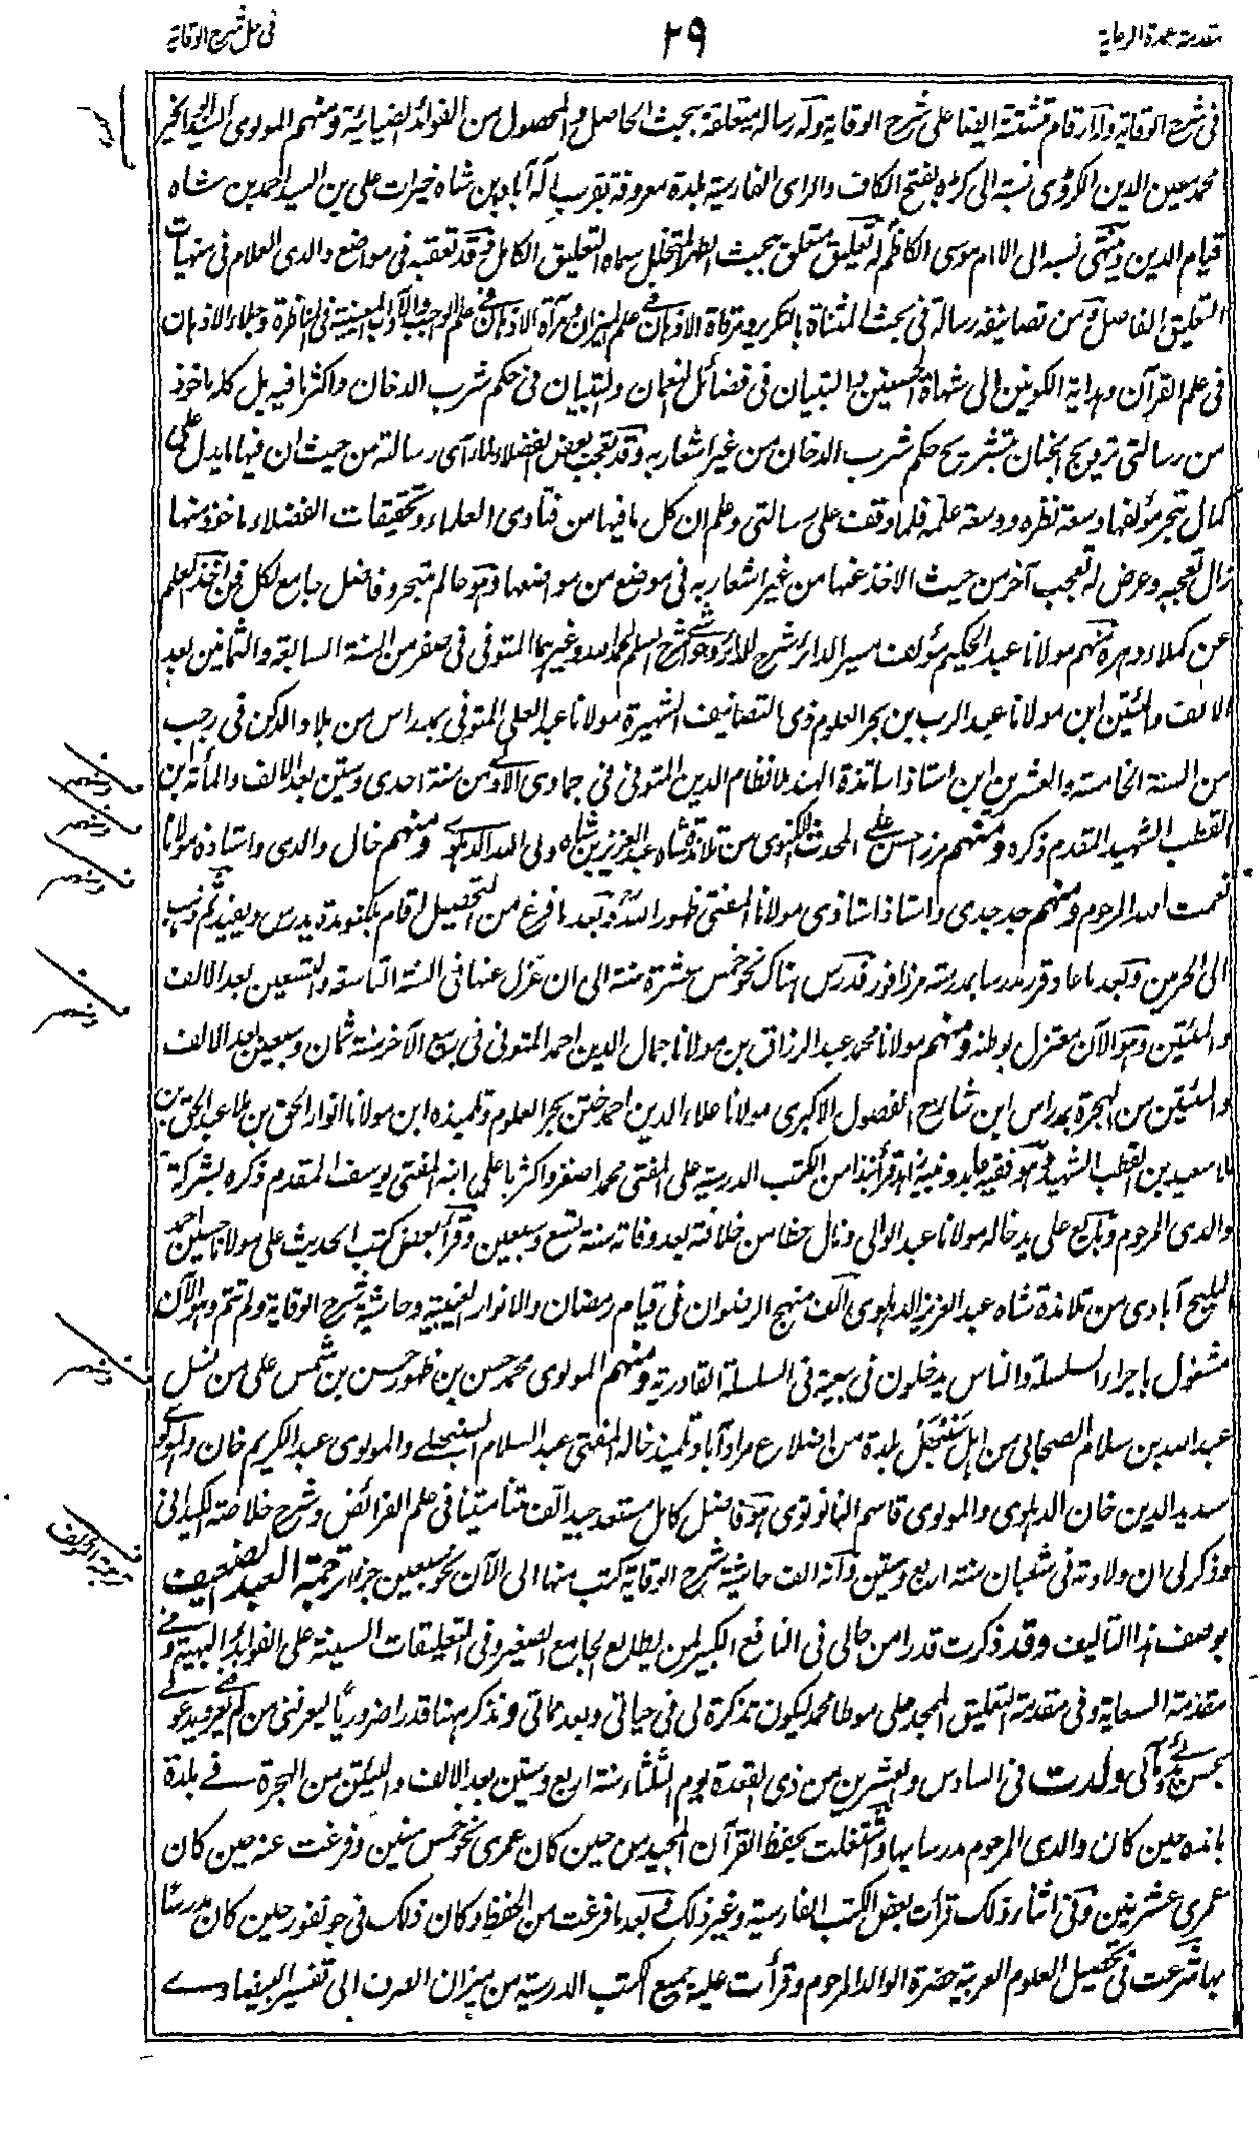 مقدمة عمدة الرعاية
٢٩
فى حل شرح الوقاية
فى شرح الوقاية والارقام متشتتة ايضا على شرح الوقاية وله رسالة متعلقة ببحث الحاصل والمحصول من الفوائد الضيائية ومنهم المولوى السيد ابو الخير
محمد معين الدين الكڑوى نسبة الى كڑه بفتح الكاف والراى الفارسية بلدة معروفة بقرب اله آباد بن شاه خيرات على بن السيد احمد بن شاه
قيام الدين وينتهى نسبه الى الامام موسى الكاظم له تعليق متعلق ببحث الطهر المتخلل سماه التعليق الكامل وقد تعقبه فى مواضع والدى العلام فى منهيات
التعليق الفاصل ومن تصانيفه رسالة فى بحث المثناة بالتكرير ومرقاة الاذهان فى علم الميزان ومرآة الاذهان فى علم الواجب والآداب المعينية فى المناظرة وجلاء الاذهان
فى علم القرآن وهداية الكونين الى شهادة الحسنين والتبيان فى فضائل النعمان والتبيان فى حكم شرب الدخان واكثر ما فيه بل كله ماخوذ
من رسالتى ترويح الجنان بتشريح حكم شرب الدخان من غير اشعار به وقد تعجب بعض الفضلاء لما رأى رسالته من حيث ان فيها ما يدل على
كمال تبحر مؤلفها وسعة نظره ووسعة علمه فلما وقف على رسالتى وعلم ان كل ما فيها من فتاوى العلماء وتحقيقات الفضلاء ماخوذ منها
زال تعجبه وعرض له تعجب آخر من حيث الاخذ عنها من غير اشعار به فى موضع من مواضعها وهو عالم متبحر وفاضل جامع لكل فن اخذ العلم
عن كملاء دهره ومنهم مولانا عبد الحكيم مؤلف مسير الدائر شرح الدائر وحواشى شرح السلم لحمد الله وغيرهما المتوفى فى صفر من السنة السابعة والثمانين بعد
الالف والمئتين ابن مولانا عبد الرب بن بحر العلوم ذى التصانيف الشهيرة مولانا عبد العلى المتوفى بمدراس من بلاد الدكن فى رجب
من السنة الخامسة والعشرين ابن استاذ اساتذة الهند ملا نظام الدين المتوفى فى جمادى الاولى من سنة احدى وستين بعد الالف والمأة ابن
القطب الشهيد المقدم ذكره ومنهم مرزا حسن على المحدث اللكنوى من تلامذة شاه عبد العزيز بن شاه ولى الله الدهلوى ومنهم خال والدى واستاذه مولانا
نعمت الله المرحوم ومنهم جد جدى واستاذ استاذى مولانا المفتى ظهور الله وبعد ما فرغ من التحصيل اقام بلكنو مدة يدرس ويفيد ثم ذهب
الى الحرمين وبعد ما عاد قرر مدرسا بمدرسة مرزافور فدرس هناك نحو خمس عشرة سنة الى ان عزل عنها فى السنة التاسعة والتسعين بعد الالف
والمئتين وهو الآن معتزل بوطنه ومنهم مولانا محمد عبد الرزاق بن مولانا جمال الدين احمد المتوفى فى ربيع الآخر سنة ثمان وسبعين بعد الالف
والمئتين من الهجرة بمدراس ابن شارح الفصول الاكبرى مولانا علاء الدين احمد ختن بحر العلوم وتلميذه ابن مولانا انوار الحق بن ملا عبد الحق بن
ملا سعيد بن القطب الشهيد وهو فقيه عابد ونبيه زاهد قرأ نبذا من الكتب الدرسية على المفتى محمد اصغر واكثرها على ابنه المفتى يوسف المقدم ذكره بشركة
والدى المرحوم وبايع على يد خاله مولانا عبد الوالى ونال حظا من خلافته بعد وفاته سنة تسع وسبعين وقرأ بعض كتب الحديث على مولانا حسين احمد
المليح آبادى من تلامذة شاه عبد العزيز الدهلوى الف منهج الرضوان فى قيام رمضان والانوار الغيبية وحاشية شرح الوقاية ولم تتم وهو الآن
مشغول باجراء السلسلة والناس يدخلون فى بيعته فى السلسلة القادرية ومنهم المولوى محمد حسن بن ظهور حسن بن شمس على من نسل
عبد الله بن سلام الصحابى من اهل سنبهل بلدة من اضلاع مرادآباد تلميذ خاله المفتى عبد السلام السنبهلى والمولوى عبد الكريم خان والمولوى
سديد الدين خان الدهلوى والمولوى قاسم النانوتوى وهو فاضل كامل مستعد جيد الف متنا متينا فى علم الفرائض وشرح خلاصة الكيدانى
وذكر لى ان ولادته فى شعبان سنة اربع وستين وانه الف حاشية شرح الوقاية كتب منها الى الآن نحو سبعين جزء ترجمة العبد الضعيف
بوصف هذا التاليف وقد ذكرت قدرا من حالى فى النافع الكبير لمن يطالع الجامع الصغير وفى التعليقات السنية على الفوائد البهية وفى
مقدمة السعاية وفى مقدمة التعليق الممجد على موطا محمد ليكون تذكرة لى فى حياتى وبعد مماتى ونذكر ههنا قدرا ضروريا ليعرفنى من لم يعرفنى ويدعو لى
بحسن بدئى ومآلى ولدت فى السادس والعشرين من ذى القعدة يوم الثلثاء سنة اربع وستين بعد الالف والمئتين من الهجرة فى بلدة
باندہ حين كان والدى المرحوم مدرسا بها واشتغلت بحفظ القرآن المجيد من حين كان عمرى نحو خمس سنين وفرغت عنه حين كان
عمرى عشر سنين وفى اثناء ذلك قرأت بعض الكتب الفارسية وغير ذلك وبعد ما فرغت من الحفظ وكان ذلك فى جونفور حين كان مدرسا
بها شرعت فى تحصيل العلوم العربية حضرة الوالد المرحوم وقرأت عليه جميع الكتب الدرسية من ميزان الصرف الى تفسير البيضاوى
ترجمة المؤلف